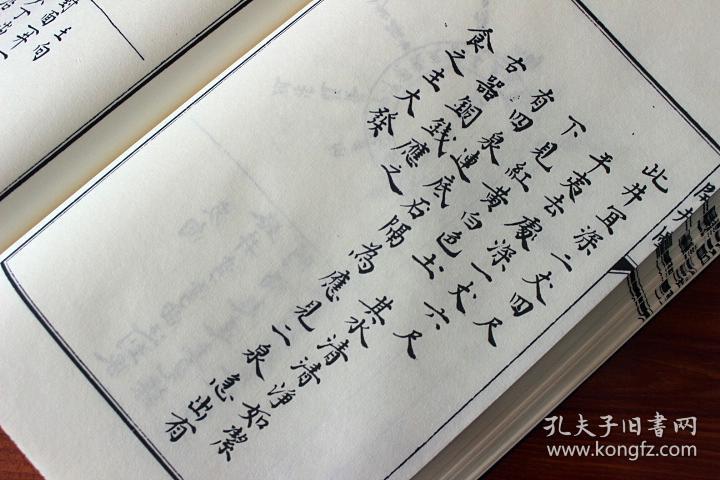 此井宜深二丈四尺
平夷去處深一丈六尺
下見紅黃白色土其水清清淨如潔
有四泉連底石隔為應見二泉急出有
古器銅錢應之
食之主大發
孔夫子旧书网
www.kongfz.com